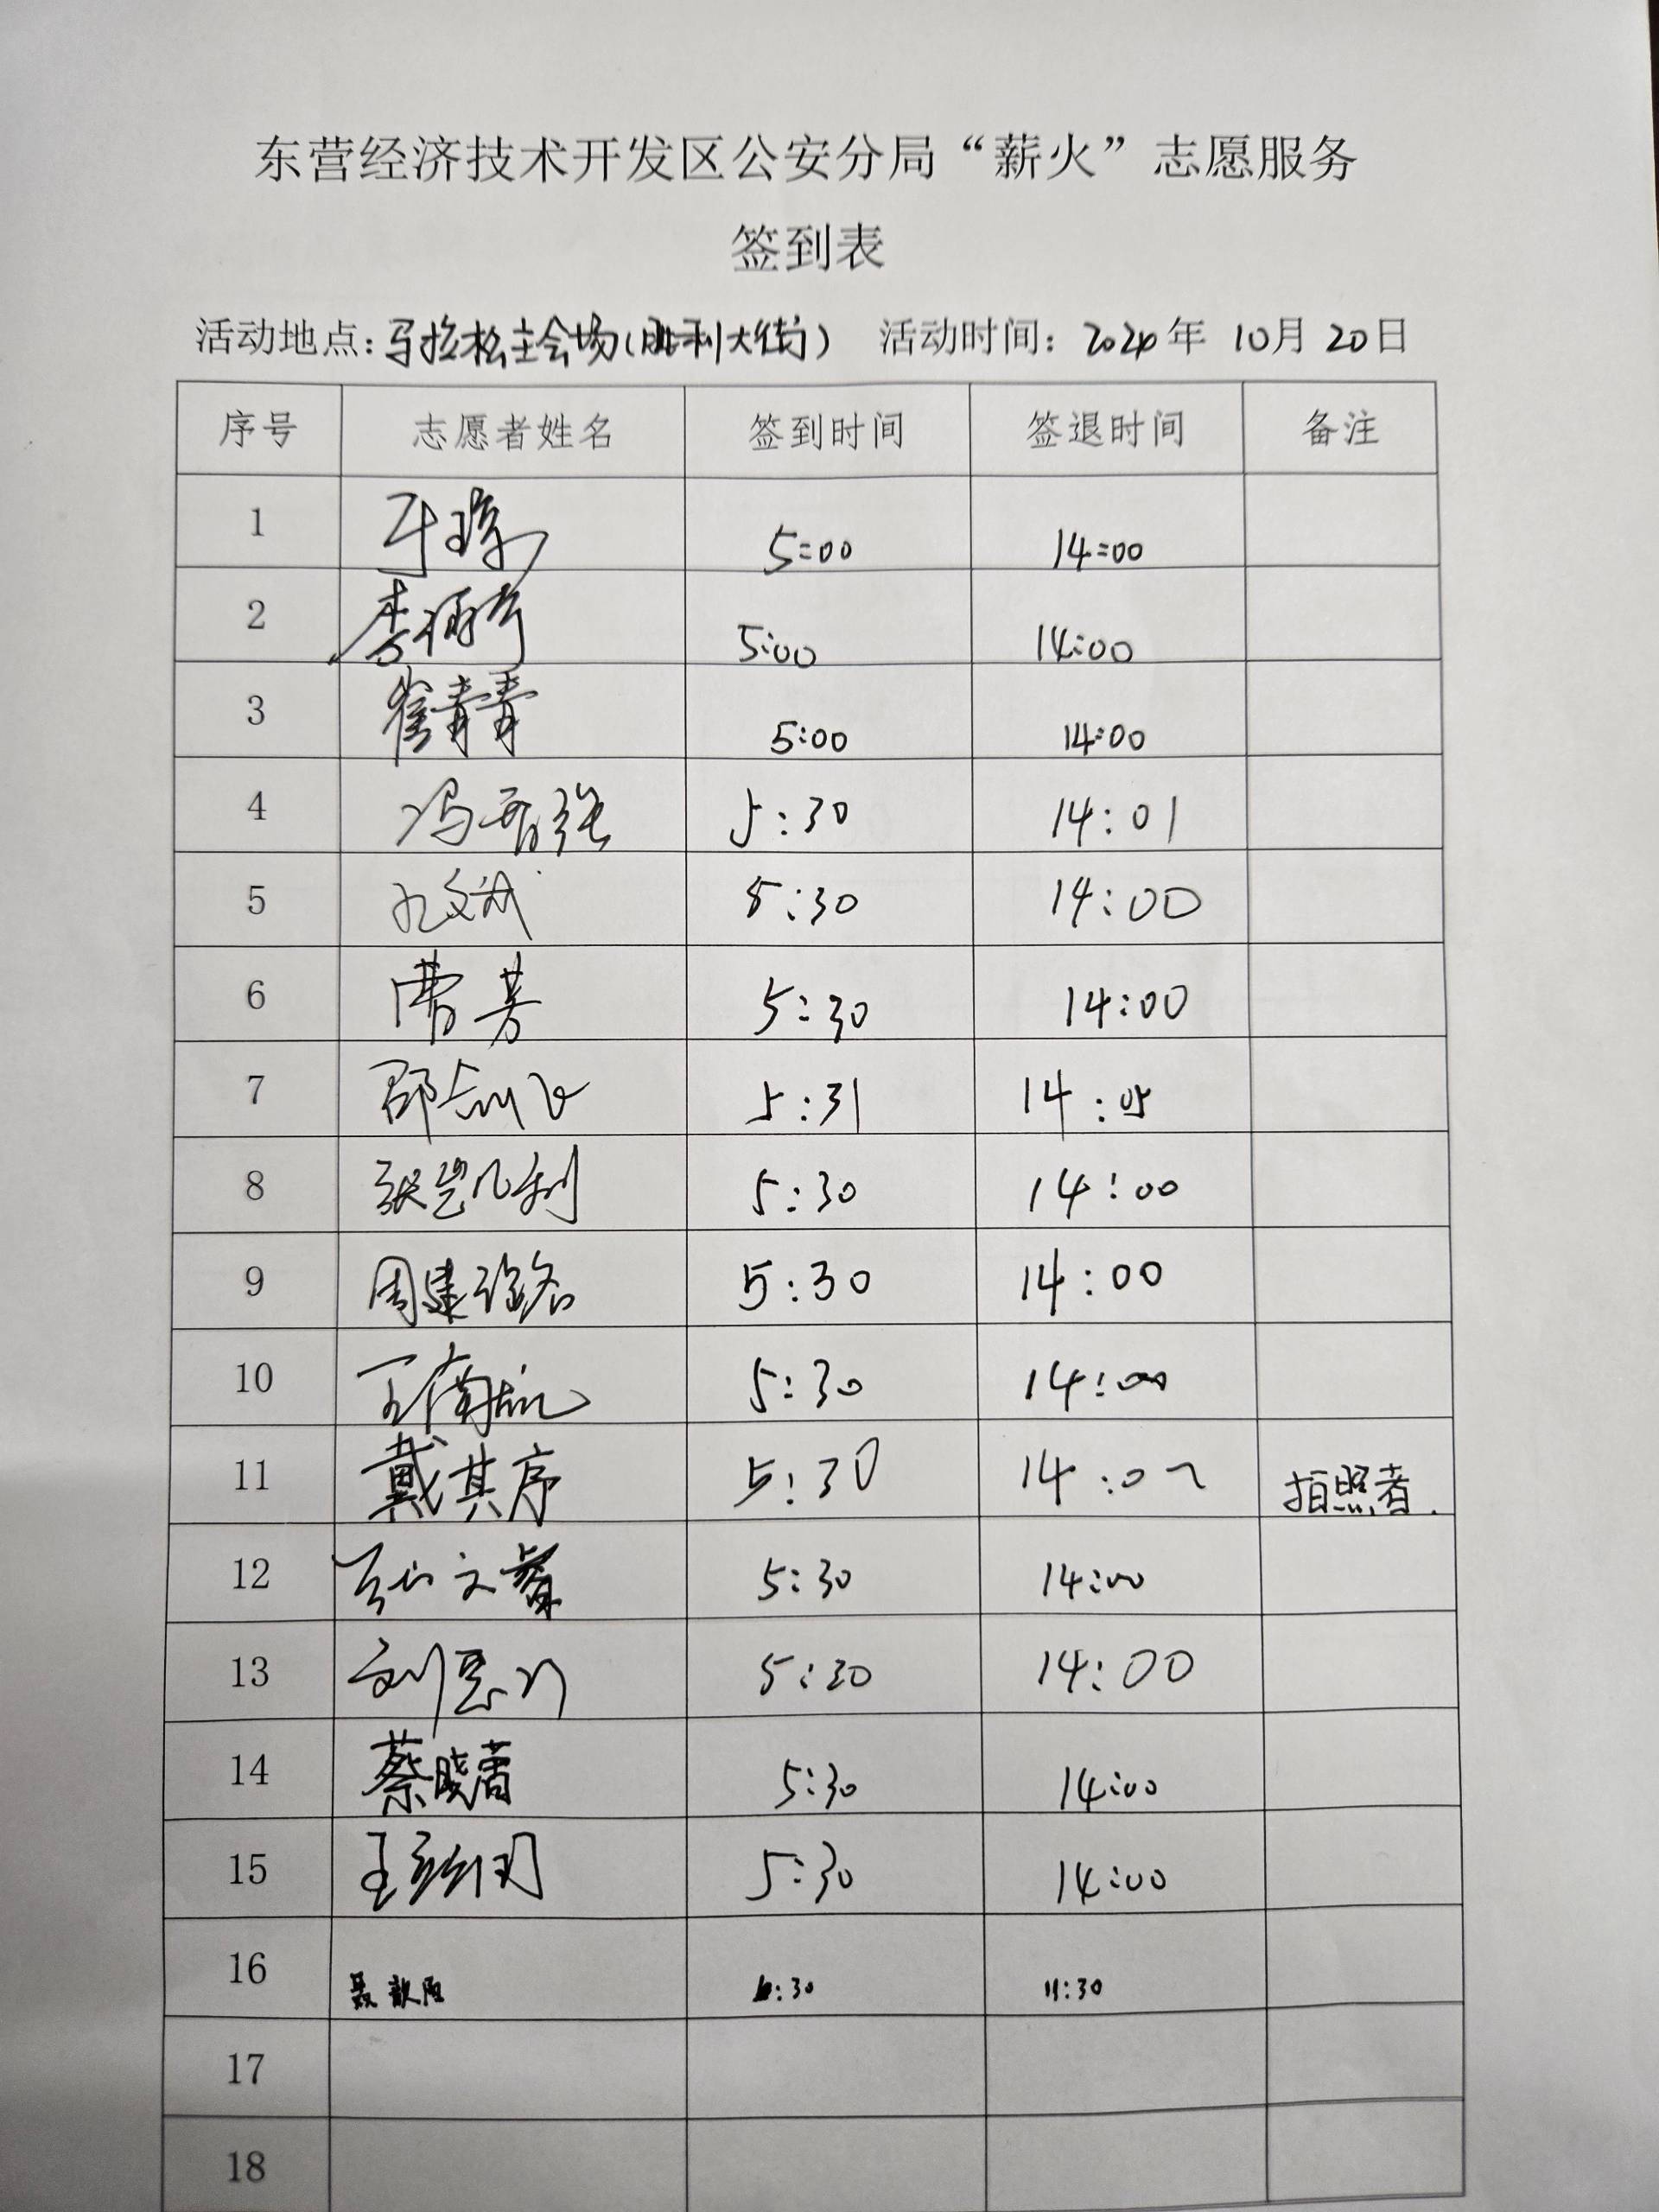 东营经济技术开发区公安分局“薪火”志愿服务
签到表
活动地点：马拉松主会场（胜利大街） 活动时间：2024年 10月 20日
序号 志愿者姓名 签到时间 签退时间 备注
1 5:00 14:00
2 5:00 14:00
3 崔青青 5:00 14:00
4 5:30 14:01
5 5:30 14:00
6 曹芳 5:30 14:00
7 5:31 14:05
8 张岂凡利 5:30 14:00
9 5:30 14:00
10 5:30 14:00
11 戴其序 5:30 14:0 拍照者.
12 5:30 14:00
13 5:30 14:00
14 蔡晓蕾 5:30 14:00
15 5:30 14:00
16 :30 11:30
17
18